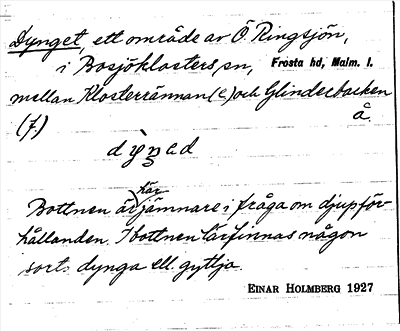 Dynget, ett område av Ö. Ringsjön,
i Bosjöklosters, sn, Frosta hd, Malm. l.
mellan Klosterrännan (e) och Glinderbacken
(f.) å.
Bottnen är här jämnare i fråga om djupför-
hållanden. I bottnen lär finnas någon
sorts dynga ell. gyttja.
EINAR HOLMBERG 1927